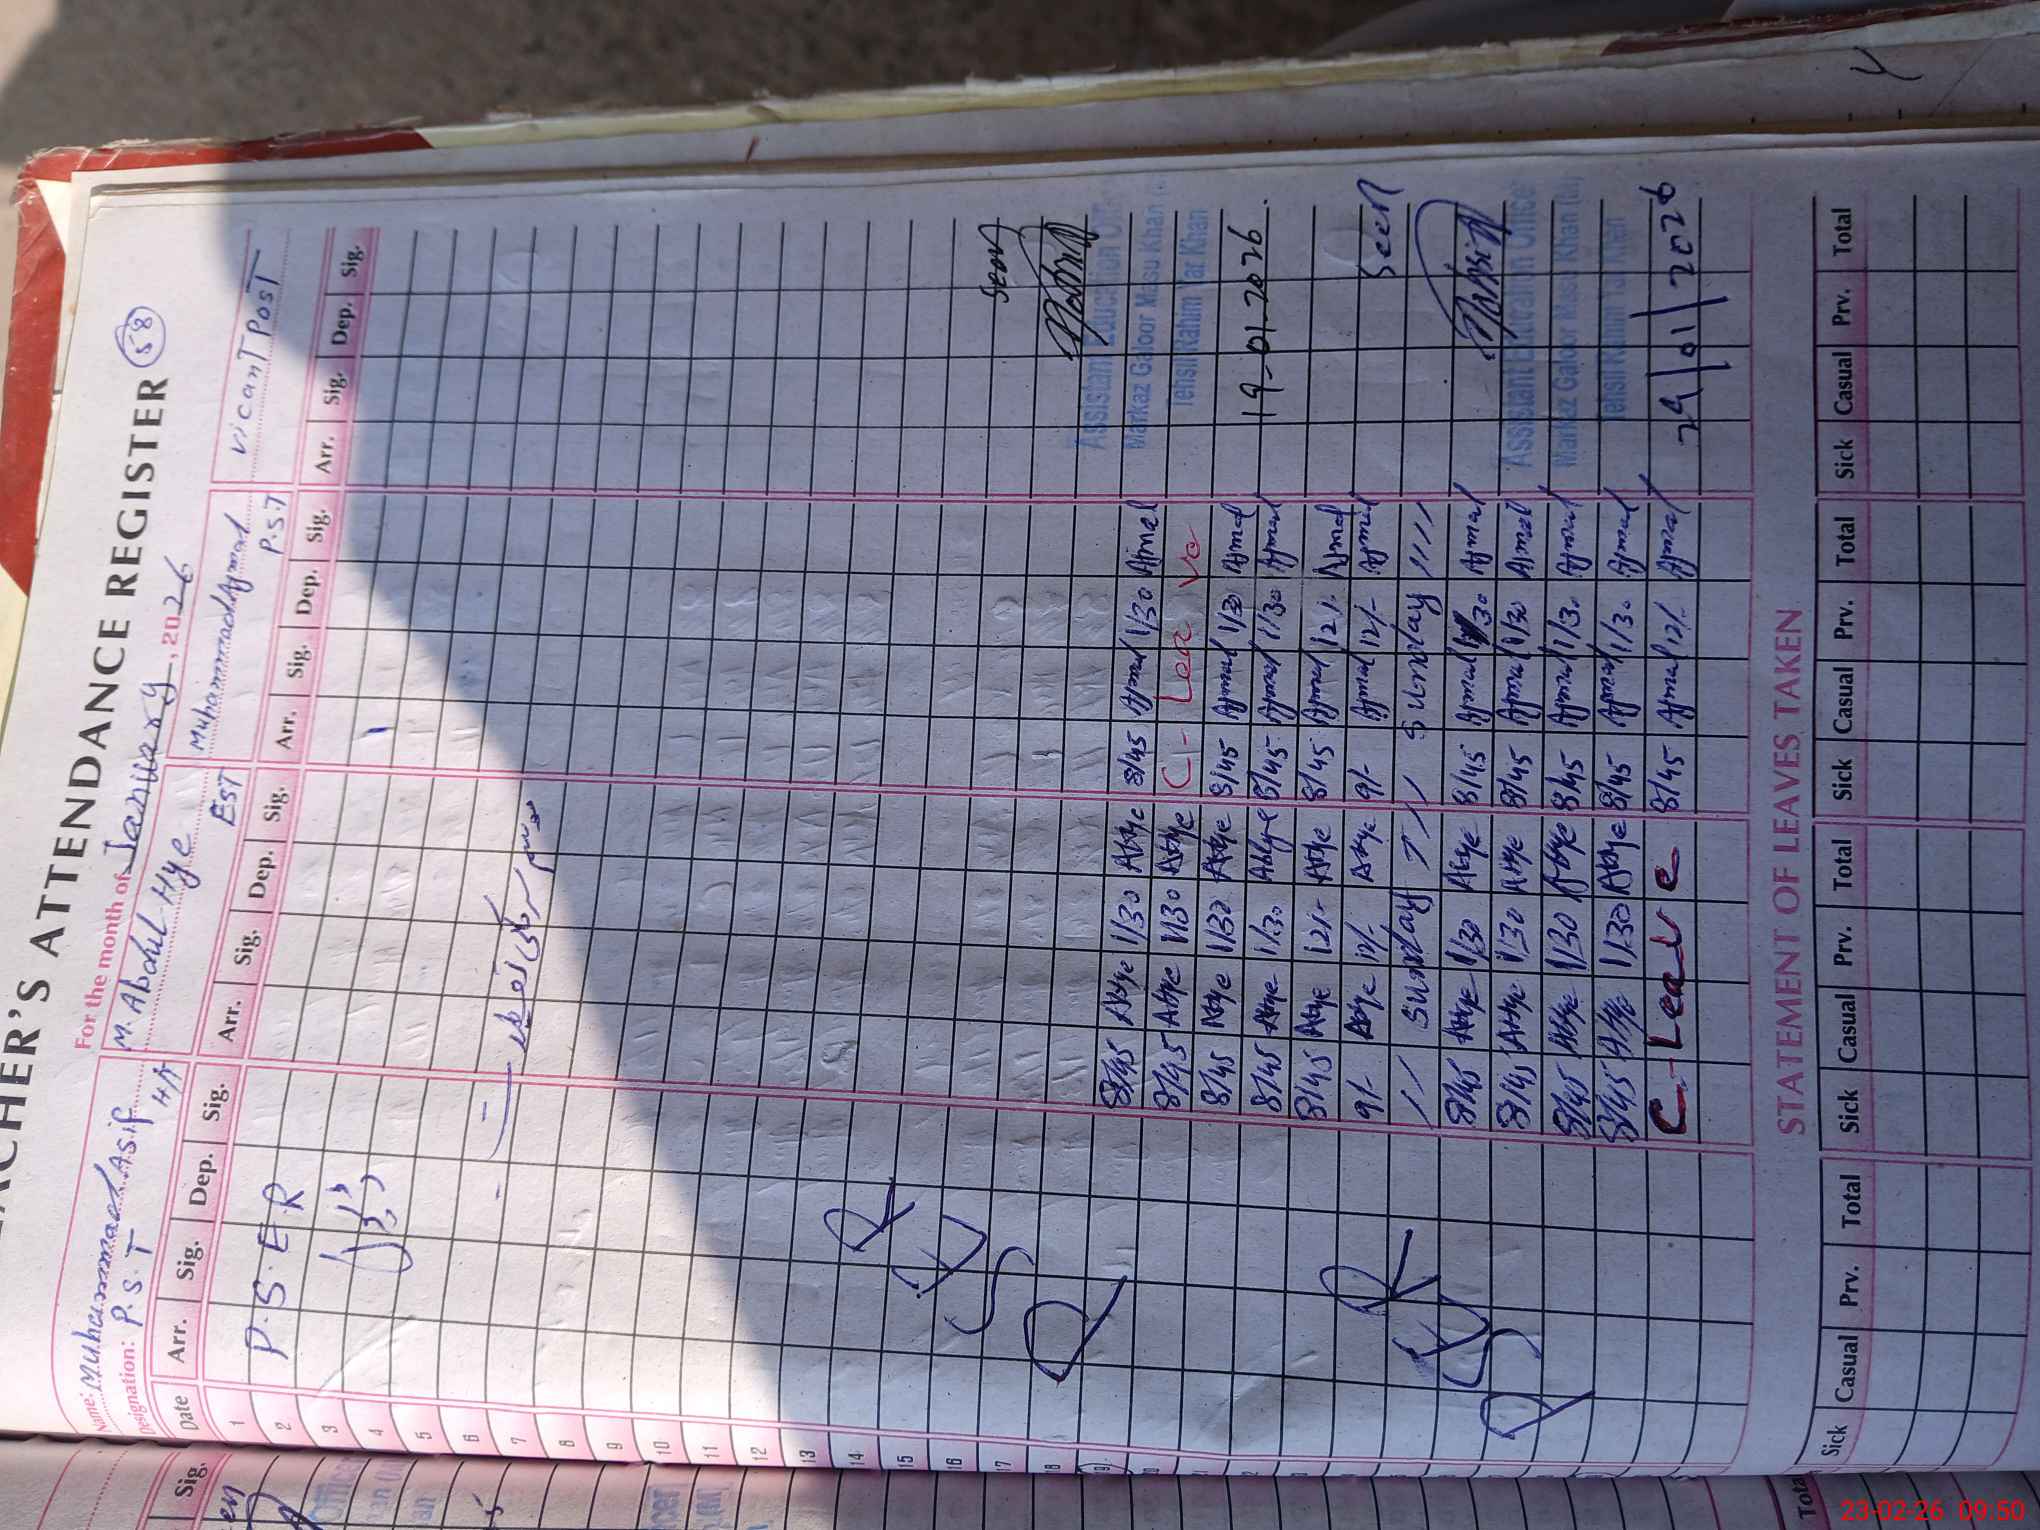 TEACHER'S ATTENDANCE REGISTER 58
For the month of January, 2026
Name: Muhammad Asif M. Abdul Hye Muhammad Ajmal vicanT PosT
Designation: P.S.T H/T EST P.S.T
Date Arr. Sig. Dep. Sig. Arr. Sig. Dep. Sig. Arr. Sig. Dep. Sig. Arr. Sig. Dep. Sig.
1
2 P.S.E.R
3
4
5
6
7
8
9
10
11
12
13
14
15
16
17 Seen
18
19 8/45 Abhye 1/30 Abhye 8/45 Ajmal 1/30 Ajmal
8/45 Abhye 1/30 Abhye C - Leave
8/45 Abhye 1/30 Abhye 8/45 Ajmal 1/30 Ajmal
8/45 Abhye 1/30 Abhye 8/45 Ajmal 1/30 Ajmal
8/45 Abhye 12/- Abhye 8/45 Ajmal 12/- Ajmal
9/- Abhye 12/- Abhye 9/- Ajmal 12/- Ajmal
// Sunday // // Sunday ////
8/45 Abhye 1/30 Abhye 8/45 Ajmal 1/30 Ajmal
8/45 Abhye 1/30 Abhye 8/45 Ajmal 1/30 Ajmal
8/45 Abhye 1/30 Abhye 8/45 Ajmal 1/30 Ajmal
8/45 Abhye 1/30 Abhye 8/45 Ajmal 1/30 Ajmal
C - Leave 8/45 Ajmal 12/- Ajmal
Assistant Education Officer
Markaz Gafoor Masu Khan
Tehsil Rahim Yar Khan
19-01-2026.
Seen
Assistant Education Officer
Markaz Gafoor Masu Khan
Tehsil Rahim Yar Khan
29/01/2026
STATEMENT OF LEAVES TAKEN
Sick Casual Prv. Total Sick Casual Prv. Total Sick Casual Prv. Total Sick Casual Prv. Total
23-02-26 09:50